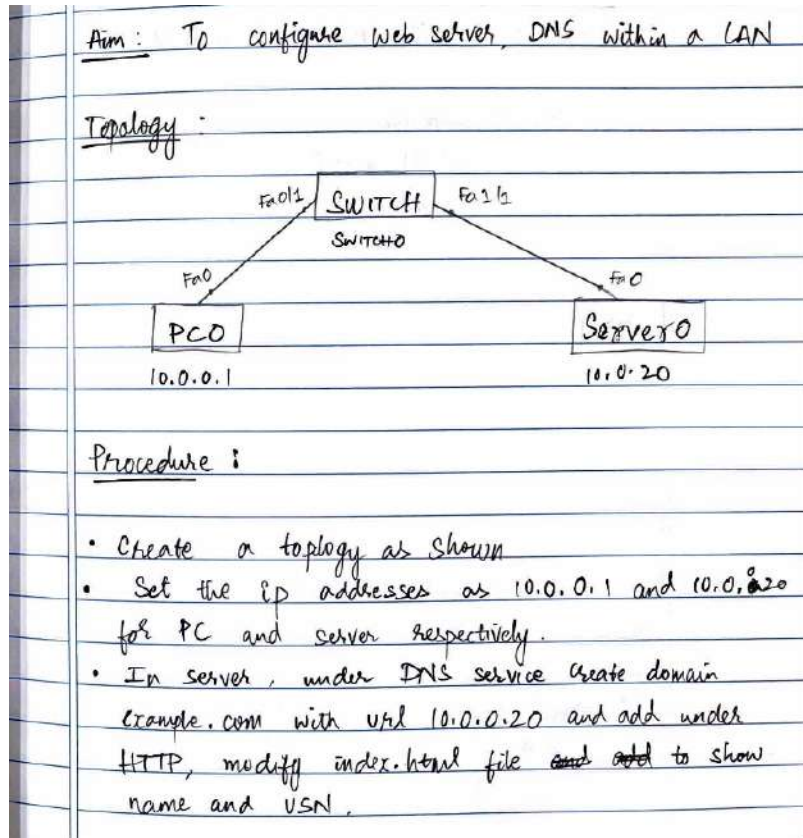 Aim: To configure web server, DNS within a LAN
Topology:
Fa0/1 SWITCH Fa1/1
SWITCH0
Fa0 Fa0
PC0 Server0
10.0.0.1 10.0.20
Procedure:
• Create a toplogy as shown
• Set the ip addresses as 10.0.0.1 and 10.0.0.20
for PC and server respectively.
• In server, under DNS service create domain
example.com with url 10.0.0.20 and add under
HTTP, modify index.html file and add to show
name and USN.